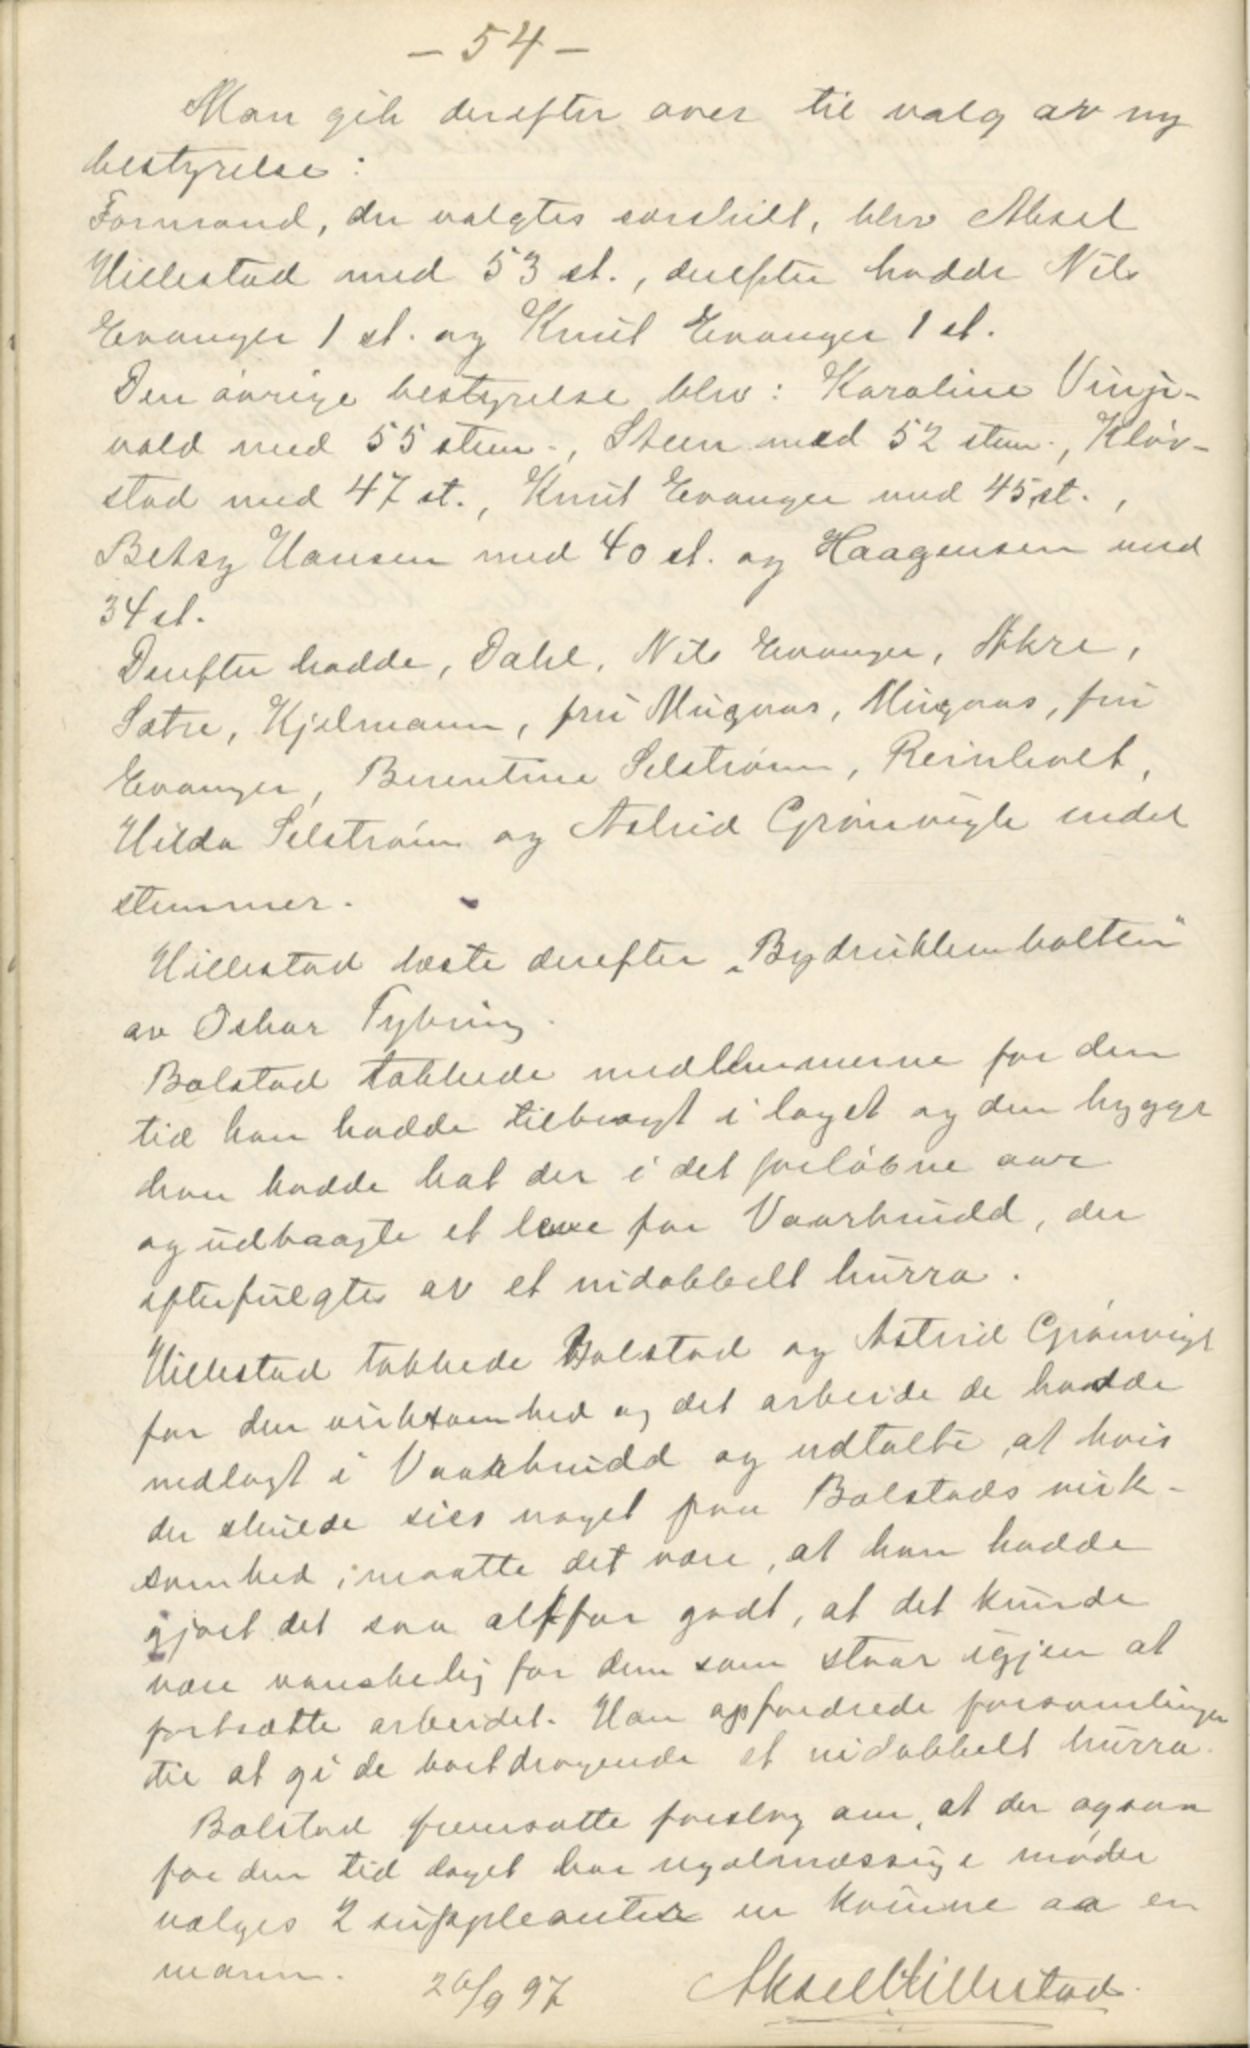 - 54 -
Man gik derefter over til valg av ny
bestyrelse:
Formand, der valgtes særskilt, blev Aksel
Hillestad med 53 st., derefter hadde Nils
Evanger 1 st. og Knut Evanger 1 st.
Den øvrige bestyrelse blev: Karoline Vinje-
vold med 55 stem., Steen med 52 stem., Kløv-
stad med 47 st., Knut Evanger med 45 st.,
Betsy Hansen med 40 st. og Haagensen med
34 st.
Derefter hadde, Dahl, Nils Evanger, Akre,
Sætre, Hjelmann, fru Mugaas, Mugaas, fru
Evanger, Berentine Selstrøm, Reinholt,
Hilda Selstrøm og Astrid Grønvigh endel
stemmer.
Hillestad læste derefter „Bydrukkenbolten"
av Oskar Tybring.
Bolstad takkede medlemmerne for den
tid han hadde tilbragt i laget og den hygge
han hadde hat der i det forløbne aar
og udbragte et leve for Vaarbrudd, der
efterfulgtes av et nidobbelt hurra.
Hillestad takkede Bolstad og Astrid Grønvigh
for den virksomhed og det arbeide de hadde
nedlagt i Vaarbrudd og udtalte, at hvis
der skulde sies noget paa Bolstads virk-
somhed, maatte det være, at han hadde
gjort det saa altfor godt, at det kunde
være vanskelig for dem som staar igjen at
fortsætte arbeidet. Han opfordrede forsamlingen
til at gi de bortdragende et nidobbelt hurra.
Bolstad fremsatte forslag om, at der ogsaa
for den tid laget har regelmæssige møder
vælges 2 suppleanter en kvinne aa en
mann.
26/9 97 Aksel Hillestad.